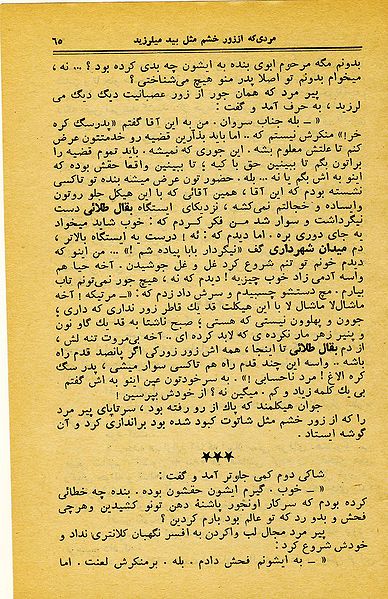 مردی‌که از زور خشم مثل بید میلرزید ۶۵
بدونم مگه مرحوم ابوی بنده به ایشون چه بدی کرده بود ؟ ... نه ،
میخوام بدونم تو اصلا پدر منو هیچ می‌شناختی ؟
پیر مرد که همان جور از زور عصبانیت دیگ دیگ می
لرزید ، به حرف آمد و گفت :
« ــ بله جناب سروان . من به این آقا گفتم «پدرسگ کره
خر!» منکرش نیستم که .. اما باید بذارین قضیه رو خدمتتون عرض
کنم تا علتش معلوم بشه . این جوری که نمیشه . باید تموم قضیه را
براتون بگم تا ببینین حق با کیه ؛ تا ببینین واقعا حقش بوده که
اینو به اش بگم یا نه ... بله . حضور تون عرض میشه بنده تو تاکسی
نشسته بودم که این آقا ، همین آقائی که با این هیکل جلو روتون
وایساده و خجالتم نمی‌کشه ، نزدیکای ایستگاه بقال طلائی دست
نیگرداشت و سوار شد . من فکر کردم که : خوب شاید میخواد
به جای دوری بره . اما دیدم که : نه ! درست یه ایستگاه بالاتر ،
دم میدان شهرداری گف «نیگردار بابا پیاده شم !» ... من اینو که
دیدم خونم تو تنم شروع کرد غل و غل جوشیدن . آخه حیا هم
واسه آدمی زاد خوب چیزیه ! دیدم که نه ، هیچ جور نمی‌تونم تاب
بیارم . مچ دستشو چسبیدم و سرش داد زدم که : «ــ مرتیکه ! آخه
ماشالا ماشال لا با این هیکلت قد یك قاطر زور نداری که داری ؛
جوون و پهلوون نیستی که هستی ؛ صبح ناشتا به قد یك گاو نون
و پنیر زهر مار نکرده ی که لابد کرده ای ..آخه بی‌مروت تنه لش ،
از دم بقال طلائی تا اینجا ، همه اش زور زورکی اگر پانصد قدم راه
باشه . واسه این چند قدم راه هم تاکسی سوار میشی ، پدر سگ
کره الاغ ! مرد ناحسابی !» . به سرخودتون عین اینو به اش گفتم
بی یك کلمه زیاد و کم . میگین نه ؟ از خودش بپرسین !
جوان هیکلمند که پاك از رو رفته بود ، سرتاپای پیر مرد
را که از زور خشم مثل شاتوت کبود شده بود براندازی کرد و آن
گوشه ایستاد .
★★★
شاکی دوم کمی جلوتر آمد و گفت :
« ــ خوب . گیرم ایشون حقشون بوده . بنده چه خطائی
کرده بودم که سرکار اونجور پاشنهٔ دهن تونو کشیدین وهرچی
فحش و بدو رد که تو عالم بود بارم کردین ؟
پیر مرد مجال لب واکردن به افسر نگهبان کلانتری نداد و
خودش شروع کرد :
« ــ به ایشونم فحش دادم . بله . برمنکرش لعنت . اما